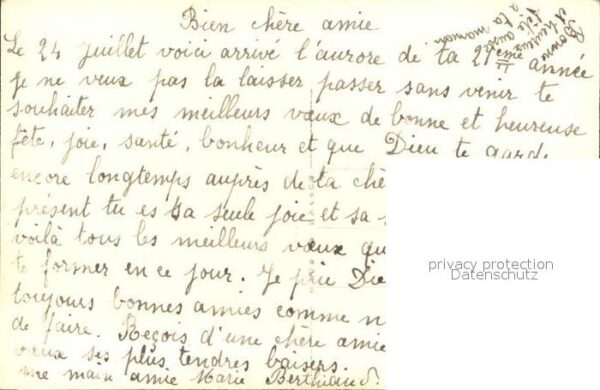 Bien chère amie
Bonne
et heureuse
fête aussi
a ta maman
Le 24 Juillet voici arrivé l'aurore de ta 21ème année
je ne veux pas la laisser passer sans venir te
souhaiter mes meilleurs vœux de bonne et heureuse
fête, joie, santé, bonheur et que Dieu te gard
encore longtemps auprès de ta chè
présent tu es sa seule joie et sa
voilà tous les meilleurs vœux qu
te former en ce jour. Je prie Die
toujours bonnes amies comme n
de faire. Reçois d'une chère amie
vœux ses plus tendres baisers.
une amie Marie Berthiaud.
privacy protection
Datenschutz